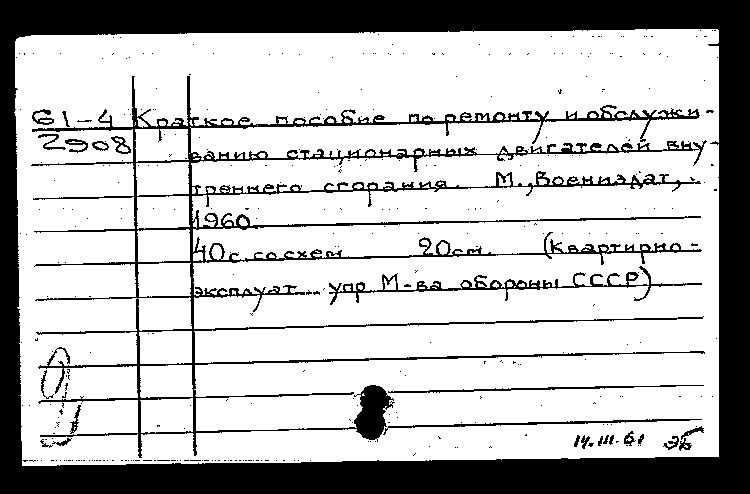 61-4 Краткое пособие по ремонту и обслужи-
2908
ванию стационарных двигателей вну-
треннего сгорания. М., Воениздат,
1960.
40с. со схем. 20см. (Квартирно-
эксплуат. упр М-ва обороны СССР)
14.III.61 ЭБ